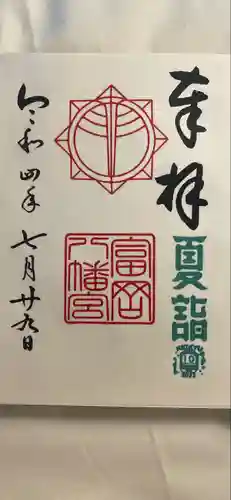 奉拝
夏詣
富岡
八幡宮
令和四年 七月廿九日